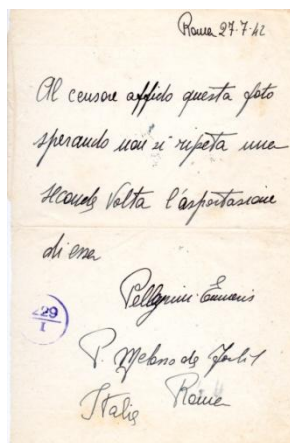 Roma 27.7.42
Al censore affido questa foto
sperando non si ripeta una
seconda volta l'asportazione
di essa
Pellegrini Ennaris
P. Melozzo da Forlì
Italia Roma
229
I